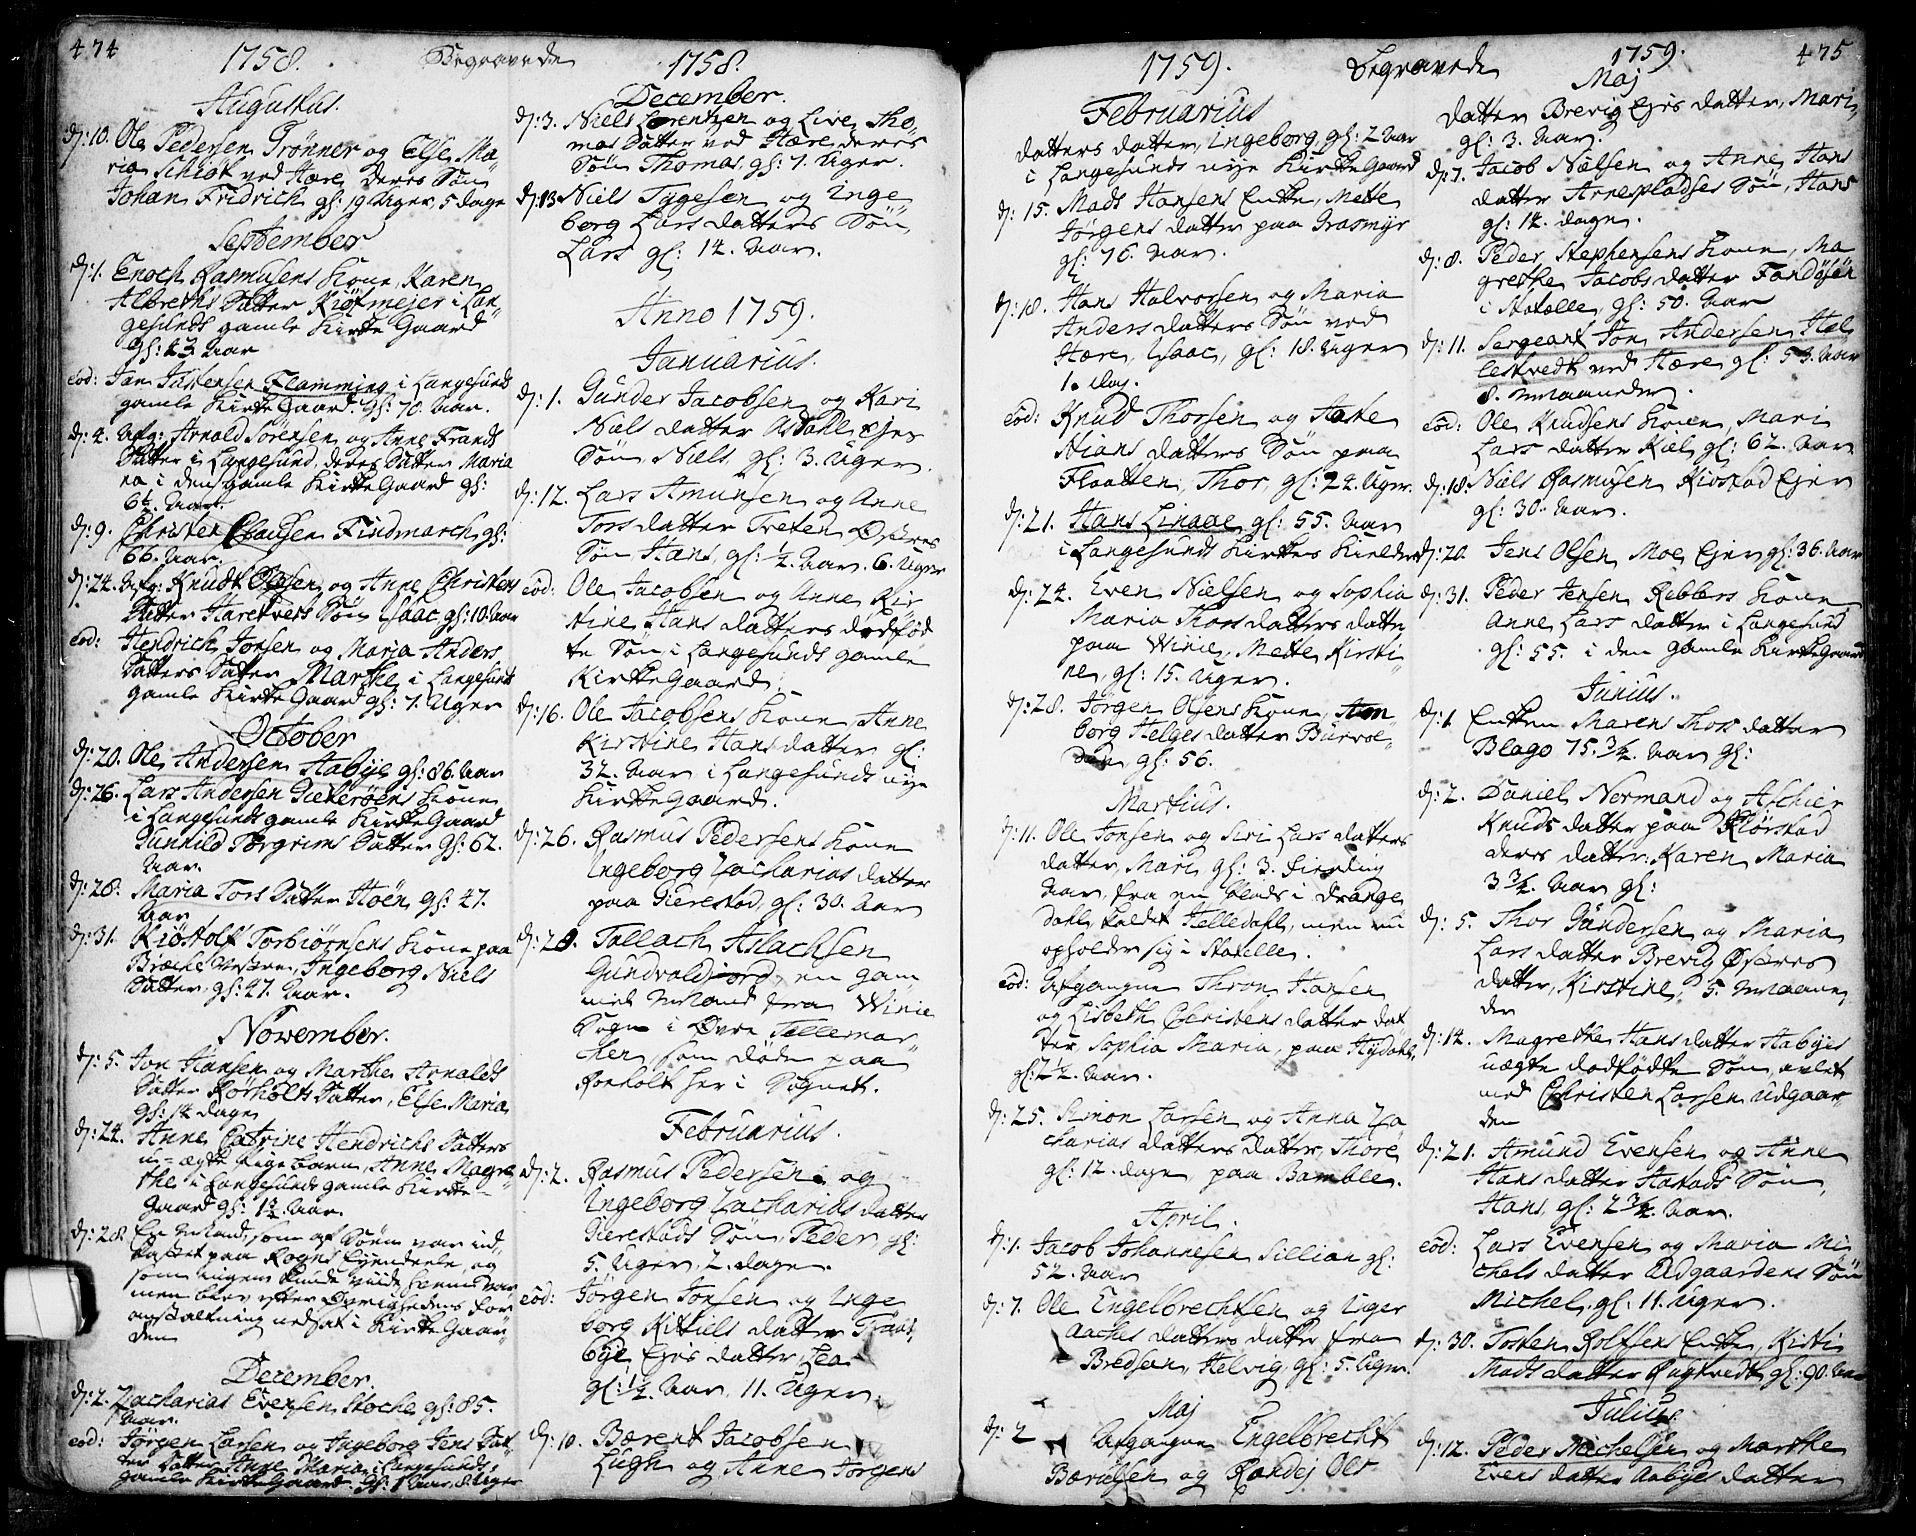 474
1758.
Begravede
1758.
Augustus.
d: 10. Ole Pedersen Grønner og Else Ma
ria Schiøt ved Stære deres Søn
Johan Fridrich gl: 19 Uger, 5 dage
September
d: 1. Enoch Rasmusens Kone, Karen
Albreths Datter Kiøtmejer i Lan
gesunds gamle Kirke Gaard
gl: 43 Aar
eod: Jan Justensen Flamming i Langesunds
gamle Kirke Gaard. gl: 70. Aar.
d: 4. Afg: Arnold Sørensen og Anne Frands
Datter i Langesund, deres Datter Maria
na i den gamle Kirke Gaard gl:
6½ Aar.
d: 9. Christen Clausen Findmarch gl:
66. Aar.
d: 24. Afg: Knudt Olsen og Anne Christens
Datter Haretvets Søn Isaac gl: 10. Aar
eod: Hendrich Jonsen og Maria Anders
Datters Datter Marthe i Langesunds
gamle Kirke Gaard gl: 7. Uger
October
d: 20. Ole Andersen Aabye gl: 86. Aar
d: 26. Lars Andersen Gieterøens Kone
i Langesunds gamle Kirke Gaard
Gunnild Torgrims Datter gl: 62.
Aar.
d: 28. Maria Tors Datter Høen gl: 47.
Aar
d: 31. Kiøstolf Torbiørnsens Kone paa
Bræche Vestre, Ingeborg Niels
Datter, gl: 47. Aar.
November.
d: 5. Jon Hansen og Marthe Arnolds
Datter Rørholts Datter, Else Maria
gl: 14 dage
d: 24. Anne Catrine Hendrichs Datters
u-ægte Pigebarn, Anne Magre
the i Langesunds gamle Kirke-
Gaard gl: 1½ Aar.
d: 28 En Mand, som af Søen var ind
kastet paa Rogns Eyendeele, og
som ingen kunde viide hvem var
men blev efter Øvrighedens For
anstaltning nedsat i Kirke Gaar
den
December.
d: 2. Zacharias Evensen Stoche gl: 85.
Aar.
eod: Jørgen Larsen og Ingeborg Jens Dat
ters Datter Anne Maria i Langesunds
gamle Kirke Gaard. gl: 1 Aar, 8 Uger
December.
d: 3. Niels Lorentzen og Live Tho
mas Datter ved Stære deres
Søn Thomas, gl: 7. Uger.
d: 13 Niels Tygesen og Inge
borg Lars datters Søn,
Lars gl: 14. Aar.
Anno 1759.
Januarius.
d: 1. Gunder Jacobsen og Kari
Niels datter Asdahl Ejes
Søn, Niels gl: 3. Uger.
d: 12. Lars Amunsen og Anne
Tors datter Treten Østres
Søn Hans, gl: ½. Aar. 6. Uger
eod: Ole Jacobsen og Anne Kir
stine Hans datters dødfød
te Søn i Langesunds gamle
Kirke Gaard.
d: 16. Ole Jacobsens Kone, Anne
Kirstine Hans datter gl:
32. Aar i Langesunds nye
Kirke Gaard.
d: 26. Rasmus Pedersens Kone
Ingeborg Zacharias datter
paa Gierestad, gl: 30. Aar
d: 28. Tallach Aslachsen
Gundvaldjord, en gam
mel Mand fra Winie
Sogn i Øvre Tellemar
chen, som døde paa
Rønholt her i Sognet.
Februarius.
d: 2. Rasmus Pedersen og
Ingeborg Zacharias datter
Gierestads Søn, Peder, gl:
5. Uger, 2. dage.
eod: Jørgen Jonsen og Inge
borg Kittils datter Traat
bye Ejes datter, Lea
gl: ½. Aar, 11. Uger.
d: 10. Bærent Jacobsen
Lugh og Anne Jorgens
1759.
Begravede
1759.
475
Februarius
datters datter, Ingeborg, gl: 2 Aar
i Langesunds nye Kirke Gaard
d: 15. Mads Hansens Enke, Mette
Jørgens datter paa Grasmyr
gl: 76. Aar.
d: 18. Hans Halvorsen og Maria
Anders datters Søn ved
Stære, Isaac, gl: 18. Uger
1. dag.
eod: Knud Thorsen og Aase
Stians datters Søn paa
Flaatten, Thor, gl: 24. Uger.
d: 21. Hans Linaae gl: 55. Aar
i Langesunds Kirkes Kielder
d: 24. Even Nielsen og Sophia
Maria Thors datters datter
paa Winie, Mette Kirsti-
ne, gl: 15. Uger.
d: 28. Jørgen Olsens Kone,
borg Helges datter Burvol-
den gl: 56.
Martius.
d: 11. Ole Jonsen og Siri Lars datters
datter, Mari, gl: 3. Fierding
Aar, fra en Plads i Drange
dahl, kaldet Helledahl, men nu
opholder sig i Statelle.
eod: Afgangne Thron Hansen
og Lisbeth Christens datter dat
ter, Sophia Maria, paa Hydahl,
gl: 2½. Aar.
d: 25. Simon Larsen og Anna Za
charias datters datter, Thore
gl: 12. dage, paa Bamble.
April.
d: 1. Jacob Johannesen Sillian gl:
52. Aar
d: 7. Ole Engelbrechtsen og Inger
Aaches datters datter fra
Bredsen, Helvig, gl: 5. Uger.
Maj
d: 2 Afgangne Engelbrecht
Bærulsen og Randej Ols
Maj
datter Brevig Ejes datter, Mari,
gl: 3. Aar.
d: 7. Jacob Nielsen og Anne Hans
datter Arnepladses Søn, Hans
gl: 14. dage.
d: 8. Peder Stephensens Kone, Ma
grethe Jacobs datter Fandøsen
i Statelle, gl: 50. Aar
d: 11. Sergeant Jon Andersen Hel
lestvedt ved Stære gl: 53. Aar
8. Maaneder.
eod: Ole Knudsens Kone, Mari
Lars datter Kiel, gl: 62. Aar
d: 18. Niels Rasmusen Kidstad Ejer
gl: 30. Aar.
d: 20. Jens Olsen Moe Ejer gl: 36. Aar
d: 31. Peder Jensen Ribbers Kone
Anne Lars datter i Langesund
gl: 55. i den gamle Kirke Gaard
Junius.
d: 1. Enken Maren Thors datter
Blago 75. ¾. Aar gl:
d: 2. Daniel Normand og Aschier
Knuds datter paa Kiørstad
deres datter: Karen Maria
3 ¾. Aar gl:
d: 5. Thor Gundersen og Maria
Lars datter Brevig Østres
datter, Kirstine, 5. Maane
der
d: 14. Magrethe Hans datter Aabyes
uægte dødfødte Søn, avlet
med Christen Larsen Udgaar
den
d: 21. Amund Evensen og Anne
Hans datter Hastads Søn,
Hans, gl: 2 ¾. Aar.
eod: Lars Evensen og Maria Mi
chels datter Udgaardens Søn
Michel, gl: 11. Uger.
d: 30. Torsten Rolfsens Enke, Kirsti
Mads datter Rugtvedt gl: 90. Aar
Julius
d: 12. Peder Michelsen og Marthe
Evens datter Aabyes datter